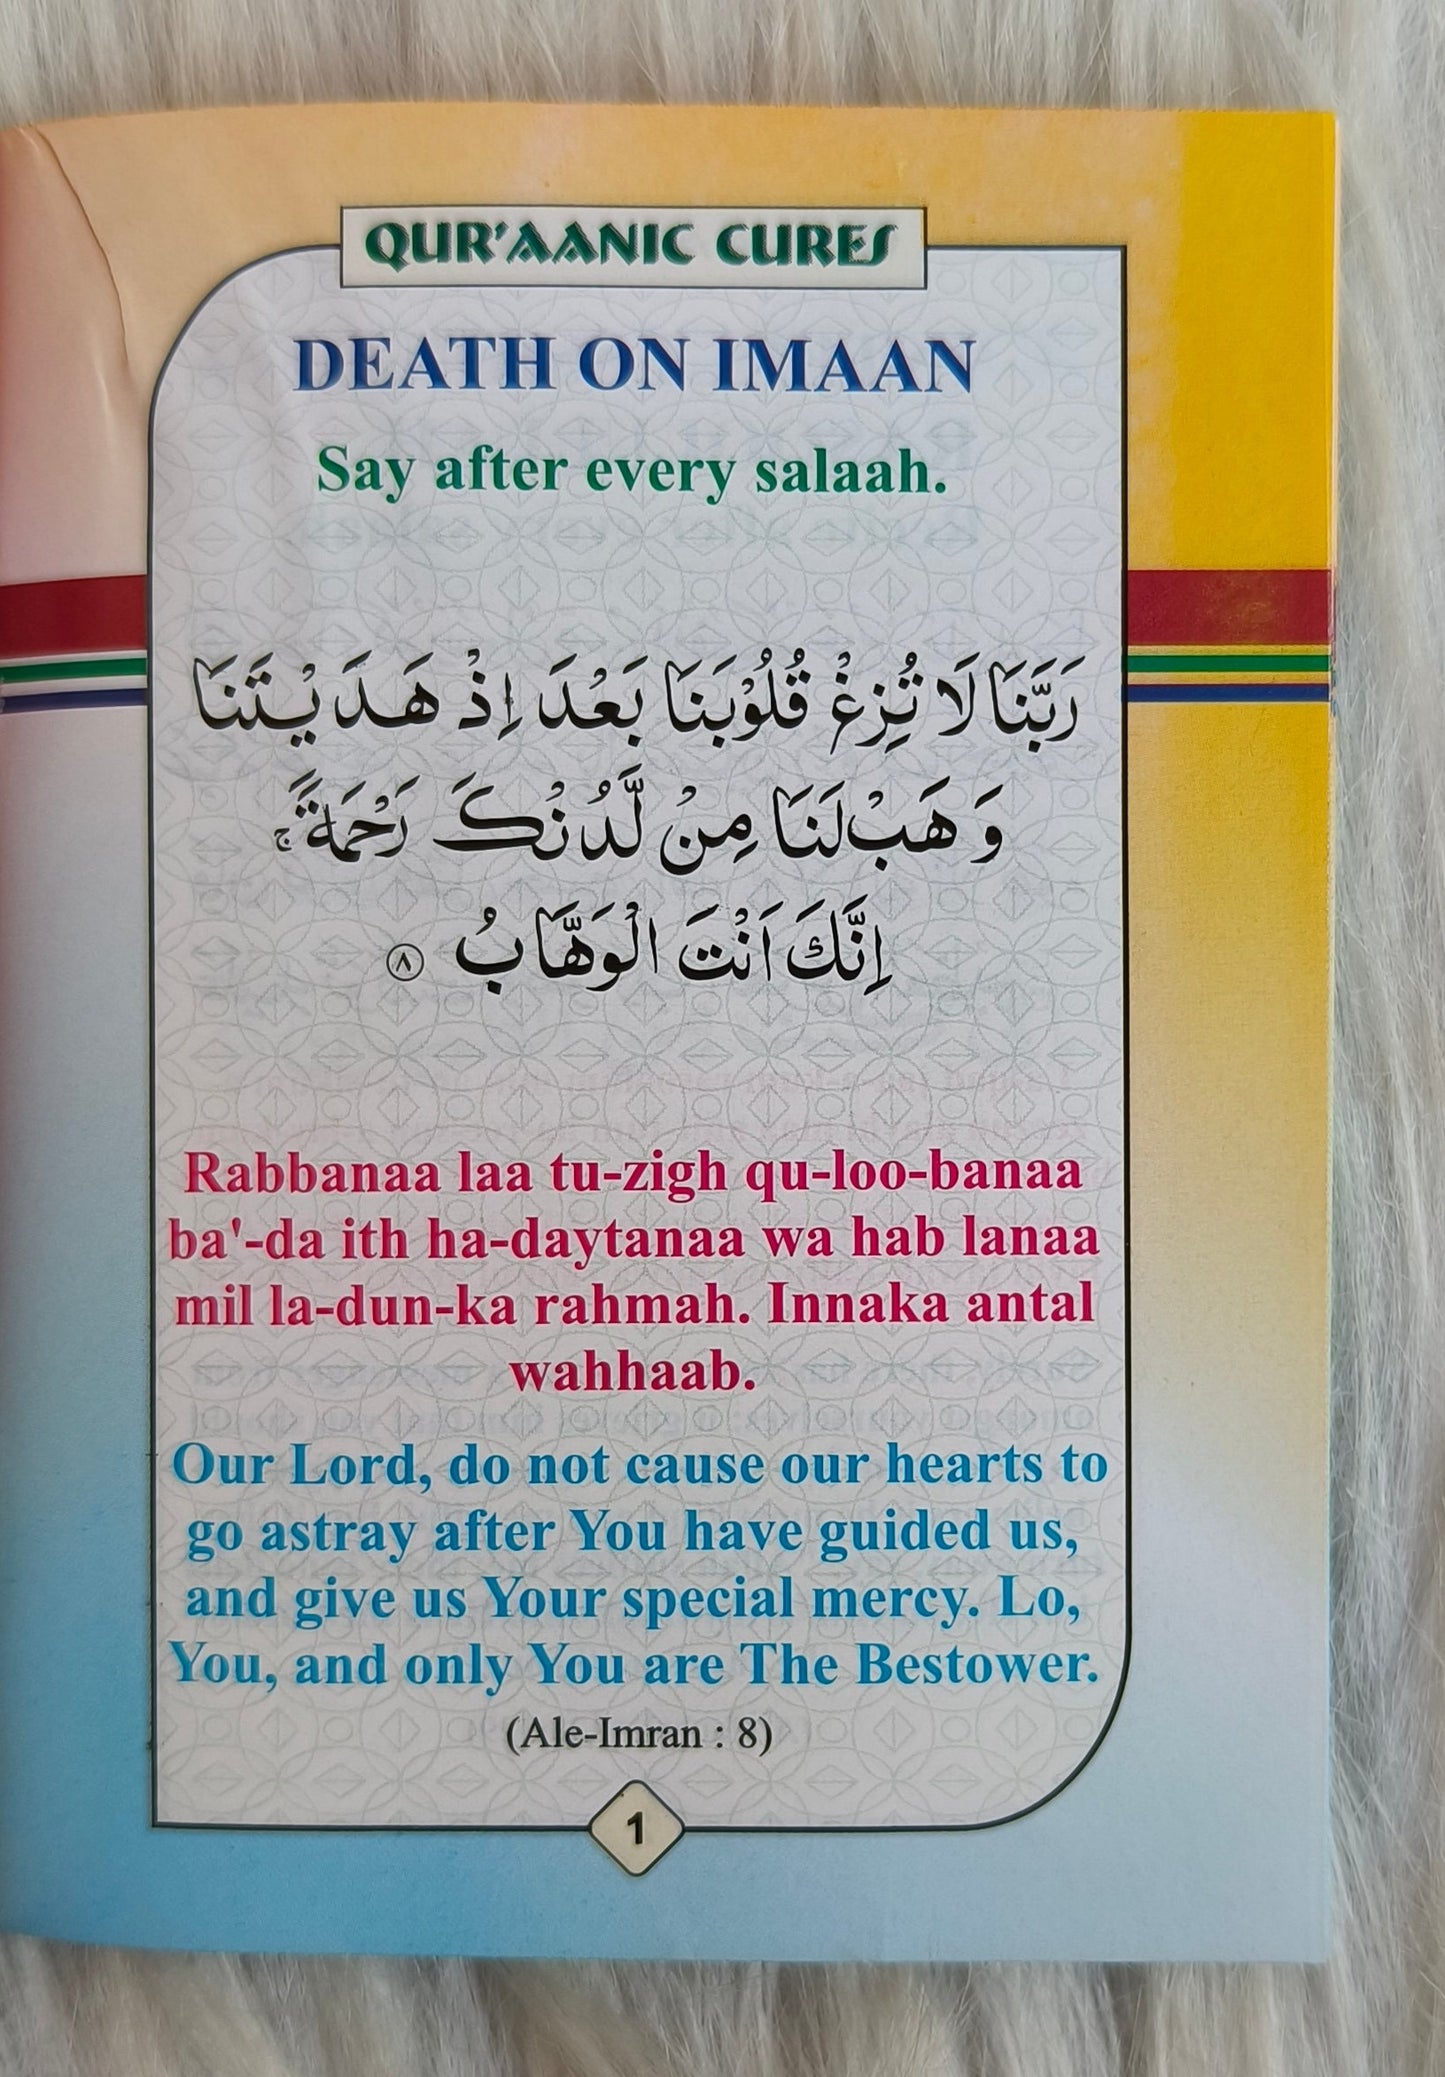 QUR'AANIC CURES
DEATH ON IMAAN
Say after every salaah.
رَبَّنَا لَا تُزِغْ قُلُوْبَنَا بَعْدَ اِذْ هَدَيْتَنَا
وَ هَبْ لَنَا مِنْ لَّدُنْكَ رَحْمَةً ۚ
اِنَّكَ اَنْتَ الْوَهَّابُ ۝۸
Rabbanaa laa tu-zigh qu-loo-banaa
ba'-da ith ha-daytanaa wa hab lanaa
mil la-dun-ka rahmah. Innaka antal
wahhaab.
Our Lord, do not cause our hearts to
go astray after You have guided us,
and give us Your special mercy. Lo,
You, and only You are The Bestower.
(Ale-Imran : 8)
1